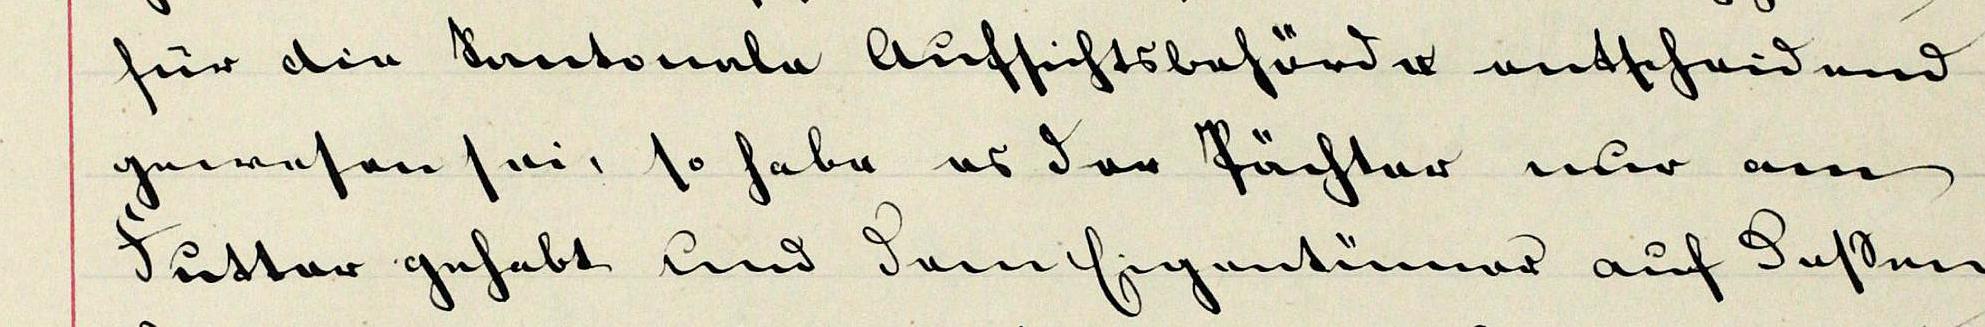 für die kantonale Aufsichtsbehörde entscheidend
gewesen sei, so habe es der Pächter nur am
Futter gehabt und dem Eigentümer auf dessen